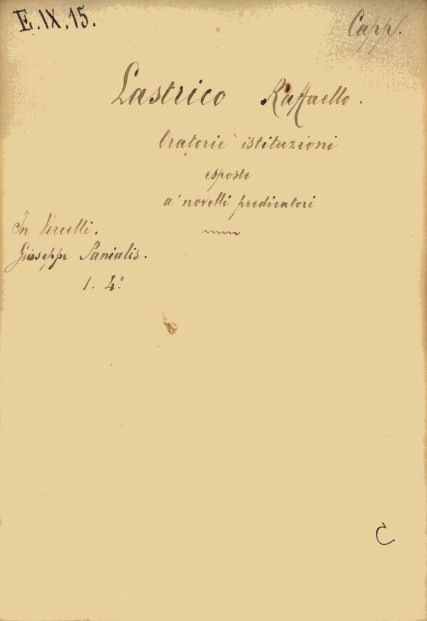 E.IX.15.
Capp.
Lastrico Raffaello.
Oratorie istituzioni
esposte
a' novelli predicatori
In Vercelli.
Giuseppe Panialis.
1. 4.°
C